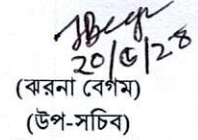 20/6/28
(ঝরনা বেগম)
(উপ-সচিব)